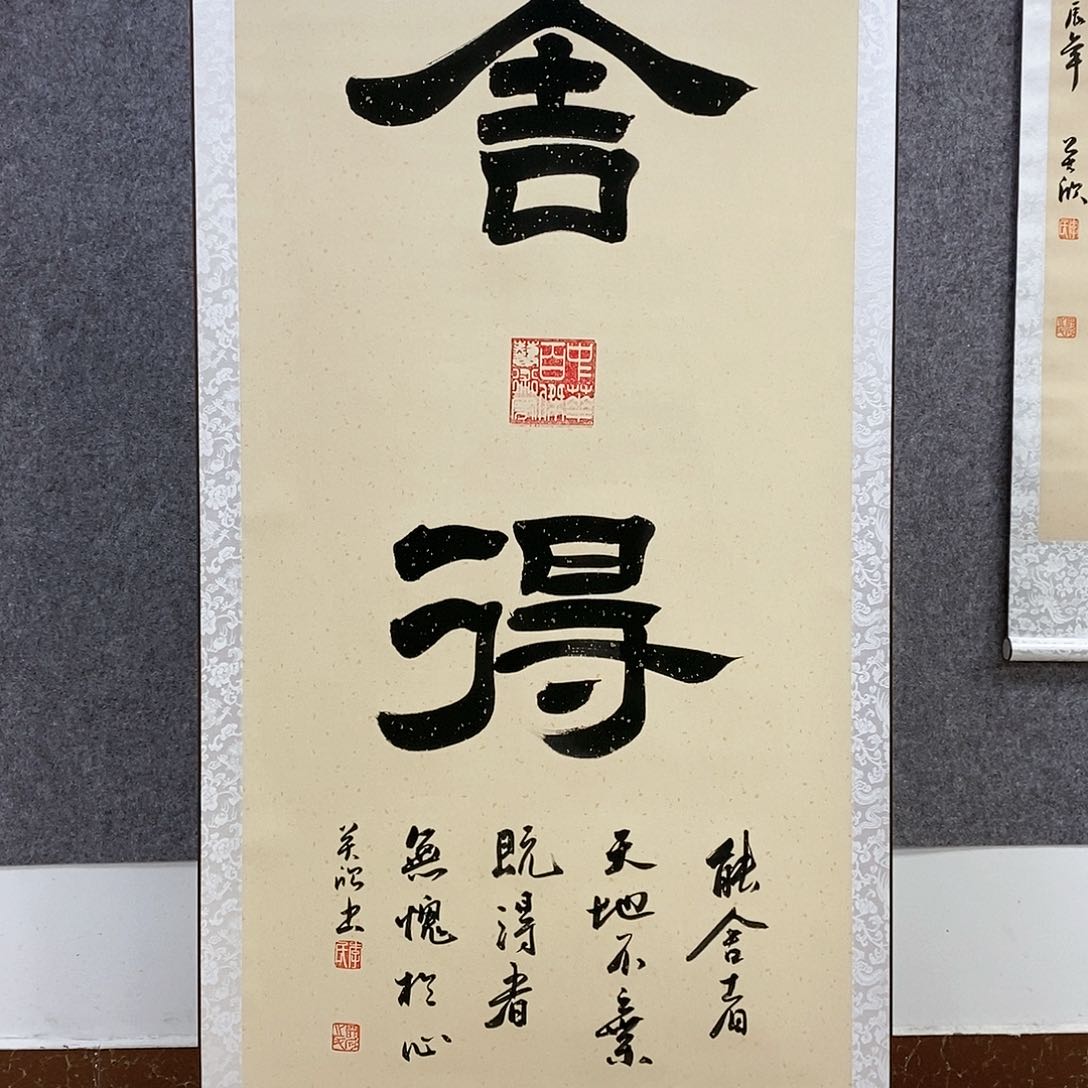 舍
得
能舍者
天地不棄
既得者
無愧於心
英欣書
辰年
英欣